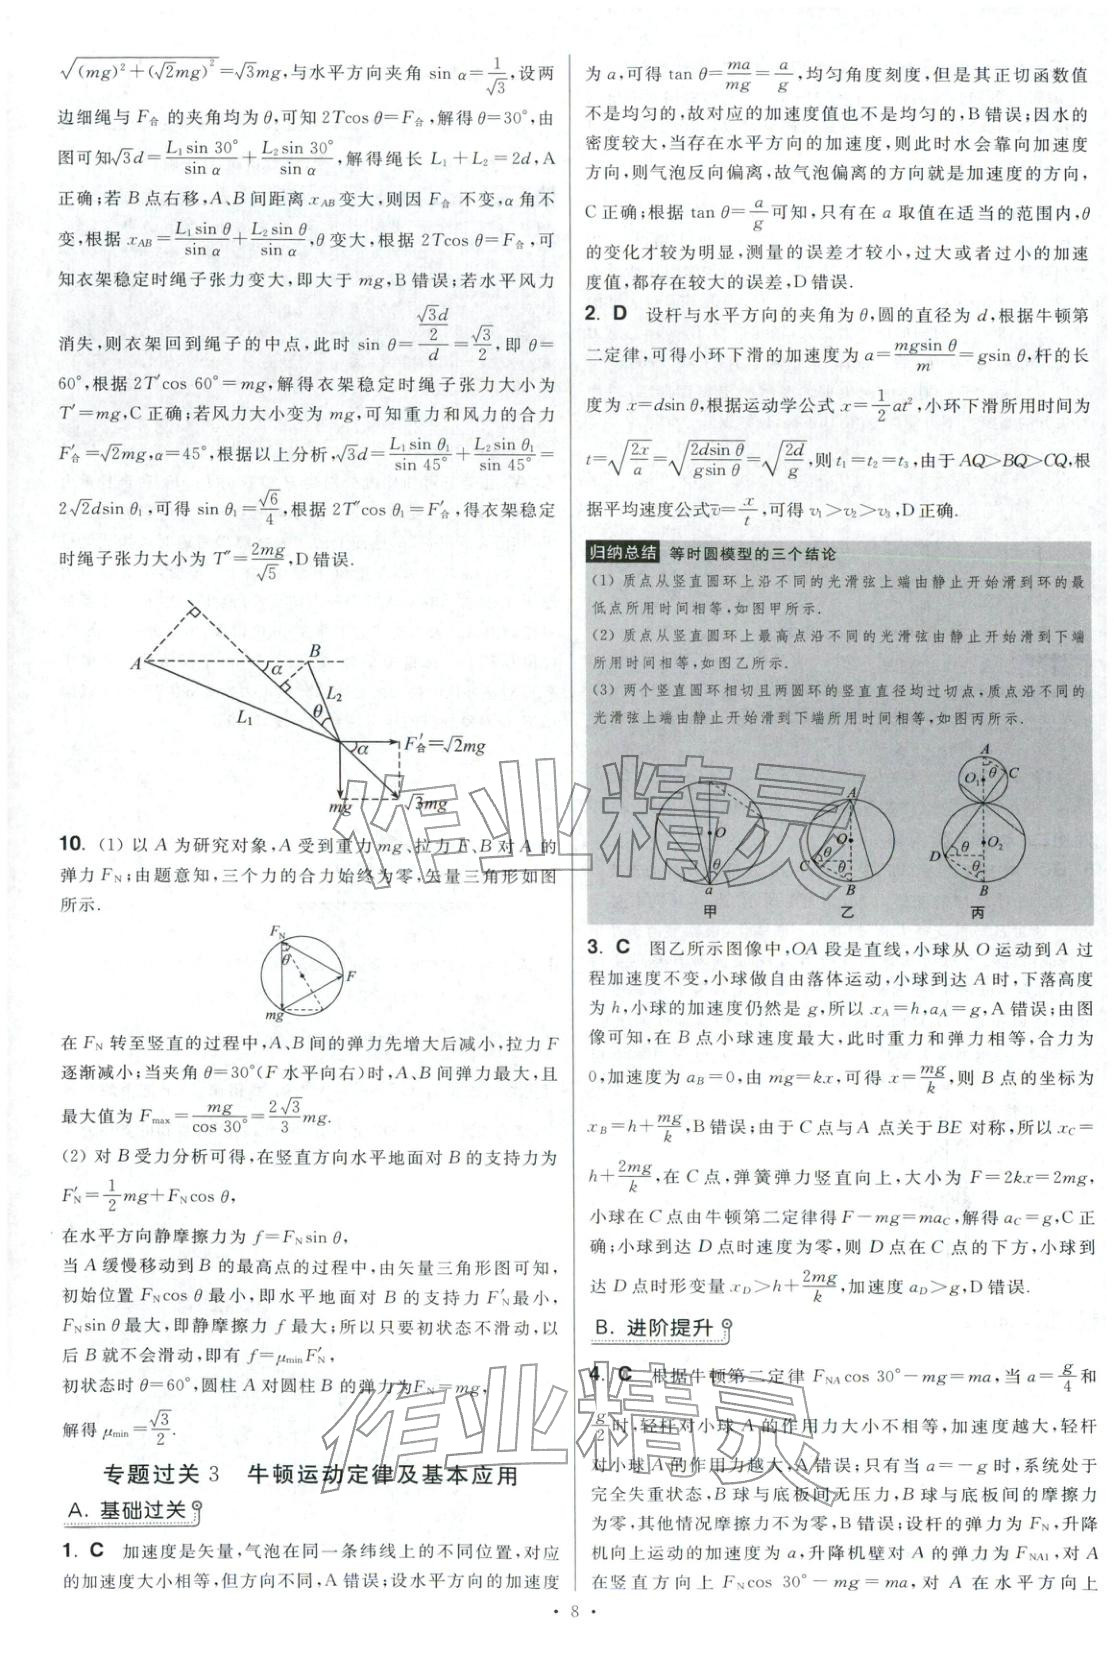 √((mg)²+(√2mg)²)=√3mg,与水平方向夹角 sin α=1/√3,设两
边细绳与 F合 的夹角均为 θ,可知 2Tcos θ=F合,解得 θ=30°,由
图可知√3d=L₁sin 30°/sin α+L₂sin 30°/sin α,解得绳长 L₁+L₂=2d,A
正确;若 B 点右移,A、B 间距离 xAB变大,则因 F合 不变,α 角不
变,根据 xAB=L₁sin θ/sin α+L₂sin θ/sin α,θ 变大,根据 2Tcos θ=F合,可
知衣架稳定时绳子张力变大,即大于 mg,B 错误;若水平风力
消失,则衣架回到绳子的中点,此时 sin θ=(√3d/2)/d=√3/2,即 θ=
60°,根据 2T′cos 60°=mg,解得衣架稳定时绳子张力大小为
T′=mg,C 正确;若风力大小变为 mg,可知重力和风力的合力
F′合=√2mg,α=45°,根据以上分析,√3d=L₁sin θ₁/sin 45°+L₂sin θ₁/sin 45°=
2√2dsin θ₁,可得 sin θ₁=√6/4,根据 2T″cos θ₁=F′合,得衣架稳定
时绳子张力大小为 T″=2mg/√5,D 错误.
A B α L₂ L₁ θ α F′合=√2mg mg √3mg
10. (1) 以 A 为研究对象,A 受到重力 mg、拉力 F、B 对 A 的
弹力 FN;由题意知,三个力的合力始终为零,矢量三角形如图
所示.
FN θ F mg
在 FN 转至竖直的过程中,A、B 间的弹力先增大后减小,拉力 F
逐渐减小;当夹角 θ=30°(F 水平向右)时,A、B 间弹力最大,且
最大值为 Fmax=mg/cos 30°=2√3/3 mg.
(2) 对 B 受力分析可得,在竖直方向水平地面对 B 的支持力为
F′N=1/2 mg+FNcos θ,
在水平方向静摩擦力为 f=FNsin θ,
当 A 缓慢移动到 B 的最高点的过程中,由矢量三角形图可知,
初始位置 FNcos θ 最小,即水平地面对 B 的支持力 F′N最小,
FNsin θ 最大,即静摩擦力 f 最大;所以只要初状态不滑动,以
后 B 就不会滑动,即有 f=μminF′N,
初状态时 θ=60°,圆柱 A 对圆柱 B 的弹力为FN=mg,
解得 μmin=√3/2.
专题过关 3 牛顿运动定律及基本应用
A. 基础过关
1. C 加速度是矢量,气泡在同一条纬线上的不同位置,对应
的加速度大小相等,但方向不同,A 错误;设水平方向的加速度
为 a,可得 tan θ=ma/mg=a/g,均匀角度刻度,但是其正切函数值
不是均匀的,故对应的加速度值也不是均匀的,B 错误;因水的
密度较大,当存在水平方向的加速度,则此时水会靠向加速度
方向,则气泡反向偏离,故气泡偏离的方向就是加速度的方向,
C 正确;根据 tan θ=a/g可知,只有在 a 取值在适当的范围内,θ
的变化才较为明显,测量的误差才较小,过大或者过小的加速
度值,都存在较大的误差,D 错误.
2. D 设杆与水平方向的夹角为 θ,圆的直径为 d,根据牛顿第
二定律,可得小环下滑的加速度为 a=mgsin θ/m=gsin θ,杆的长
度为 x=dsin θ,根据运动学公式 x=1/2 at²,小环下滑所用时间为
t=√(2x/a)=√(2dsin θ/gsin θ)=√(2d/g),则 t₁=t₂=t₃,由于 AQ>BQ>CQ,根
据平均速度公式v̄=x/t,可得 v₁>v₂>v₃,D 正确.
归纳总结 等时圆模型的三个结论
(1) 质点从竖直圆环上沿不同的光滑弦上端由静止开始滑到环的最
低点所用时间相等,如图甲所示.
(2) 质点从竖直圆环上最高点沿不同的光滑弦由静止开始滑到下端
所用时间相等,如图乙所示.
(3) 两个竖直圆环相切且两圆环的竖直直径均过切点,质点沿不同的
光滑弦上端由静止开始滑到下端所用时间相等,如图丙所示.
O θ a 甲
A O θ C θ B 乙
A O₁ θ C D θ O₂ θ B 丙
3. C 图乙所示图像中,OA 段是直线,小球从 O 运动到 A 过
程加速度不变,小球做自由落体运动,小球到达 A 时,下落高度
为 h,小球的加速度仍然是 g,所以 xA=h,aA=g,A 错误;由图
像可知,在 B 点小球速度最大,此时重力和弹力相等,合力为
0,加速度为 aB=0,由 mg=kx,可得 x=mg/k,则 B 点的坐标为
xB=h+mg/k,B 错误;由于 C 点与 A 点关于BE 对称,所以 xC=
h+2mg/k,在 C 点,弹簧弹力竖直向上,大小为 F=2kx=2mg,
小球在 C 点由牛顿第二定律得 F-mg=maC,解得 aC=g,C 正
确;小球到达 D 点时速度为零,则 D 点在 C 点的下方,小球到
达 D 点时形变量 xD>h+2mg/k,加速度 aD>g,D 错误.
B. 进阶提升
4. C 根据牛顿第二定律 FNAcos 30°-mg=ma,当 a=g/4 和
g/2时,轻杆对小球 A 的作用力大小不相等,加速度越大,轻杆
对小球 A 的作用力越大,A 错误;只有当 a=-g 时,系统处于
完全失重状态,B 球与底板间无压力,B 球与底板间的摩擦力
为零,其他情况摩擦力不为零,B 错误;设杆的弹力为 FN,升降
机向上运动的加速度为 a,升降机壁对 A 的弹力为 FNA1,对 A
在竖直方向上 FNcos 30°-mg=ma,对 A 在水平方向上
· 8 ·
作业精灵
作业精灵